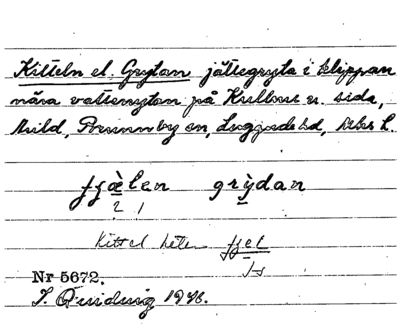 Kitteln el. Grytan jättegryta i klippan
nära vattenytan på Kullens n. sida,
Kuld, Brunnby sn, Luggude hd, L.
fjælen grỳdan
2 1
Kittel heter fjel
Nr 5672.
1946.